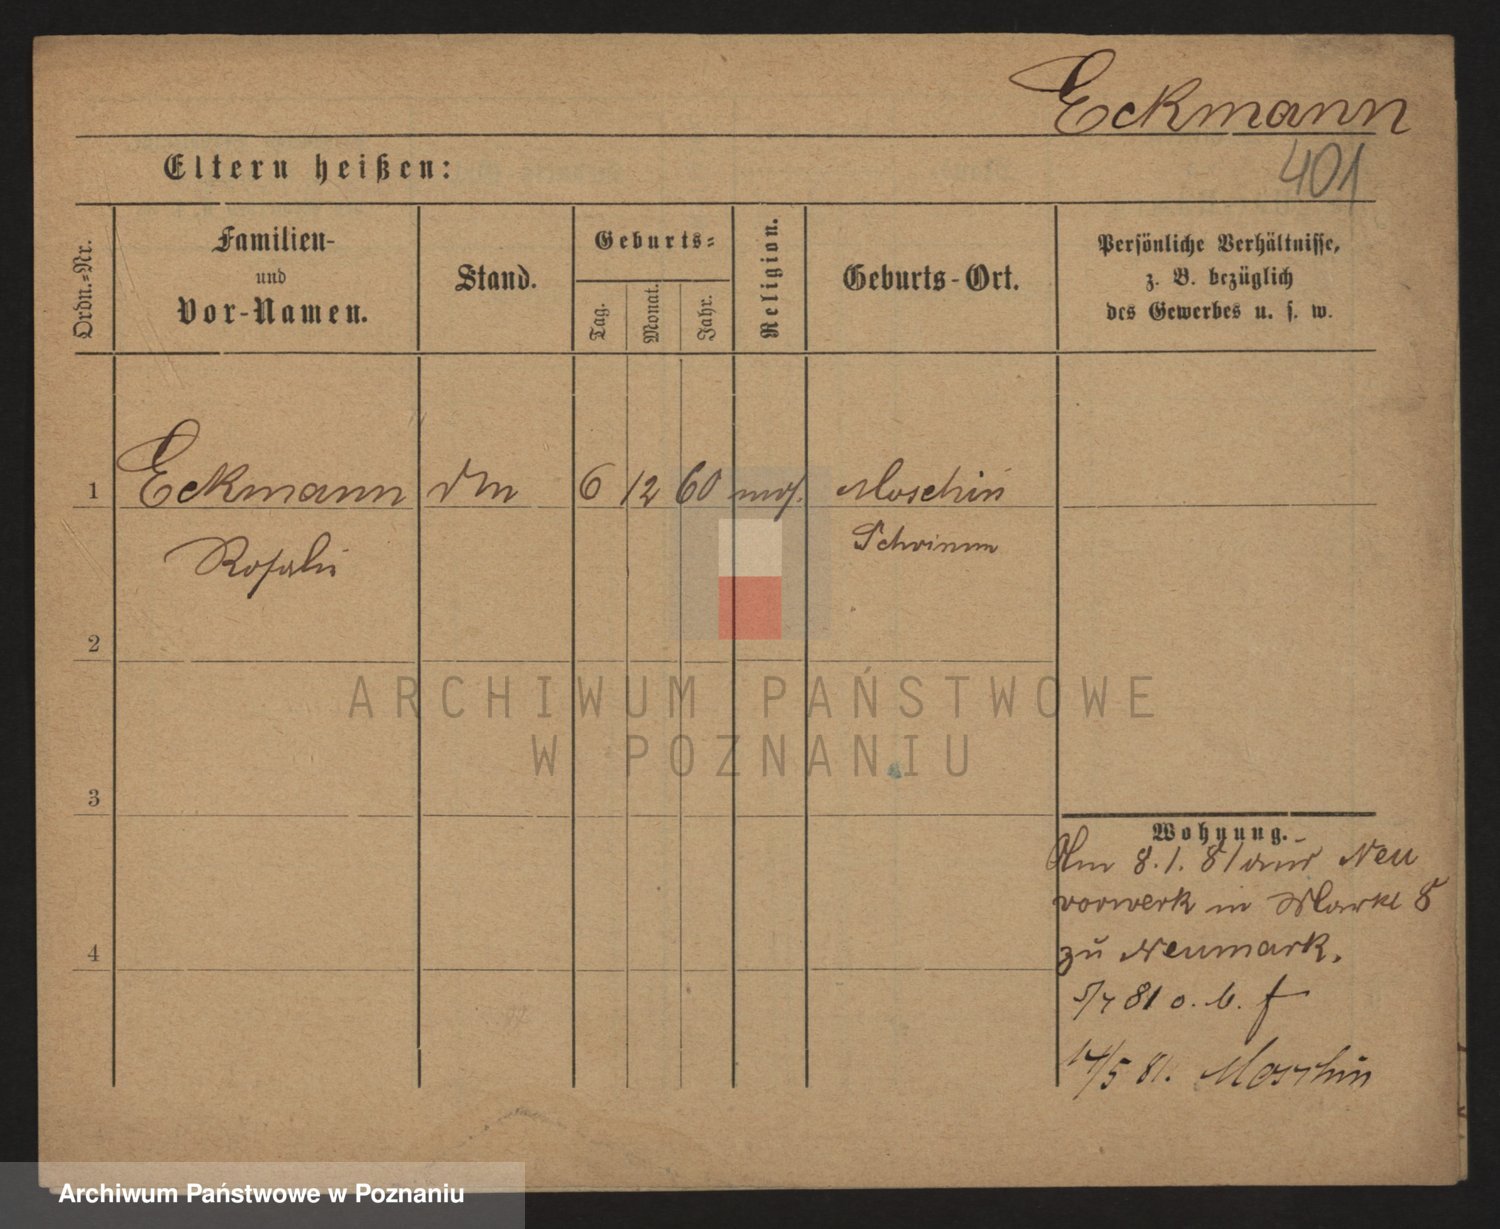 Eckmann
401
Eltern heißen:
Ordn.-Nr.
Familien-
und
Vor-Namen.
Stand.
Geburts-
Tag.
Monat.
Jahr.
Religion.
Geburts-Ort.
Persönliche Verhältnisse,
z. B. bezüglich
des Gewerbes u. s. w.
1 Eckmann 6 12 60 mos. Moschin
Rosalie Schrimm
2
3
4
Wohnung.
Am 8. 1. 81 aus Neu
vorwerk in Markt 5
zu Neumark.
5/7 81 o. b. f
14/5 81. Moschin
ARCHIWUM PAŃSTWOWE
W POZNANIU
Archiwum Państwowe w Poznaniu